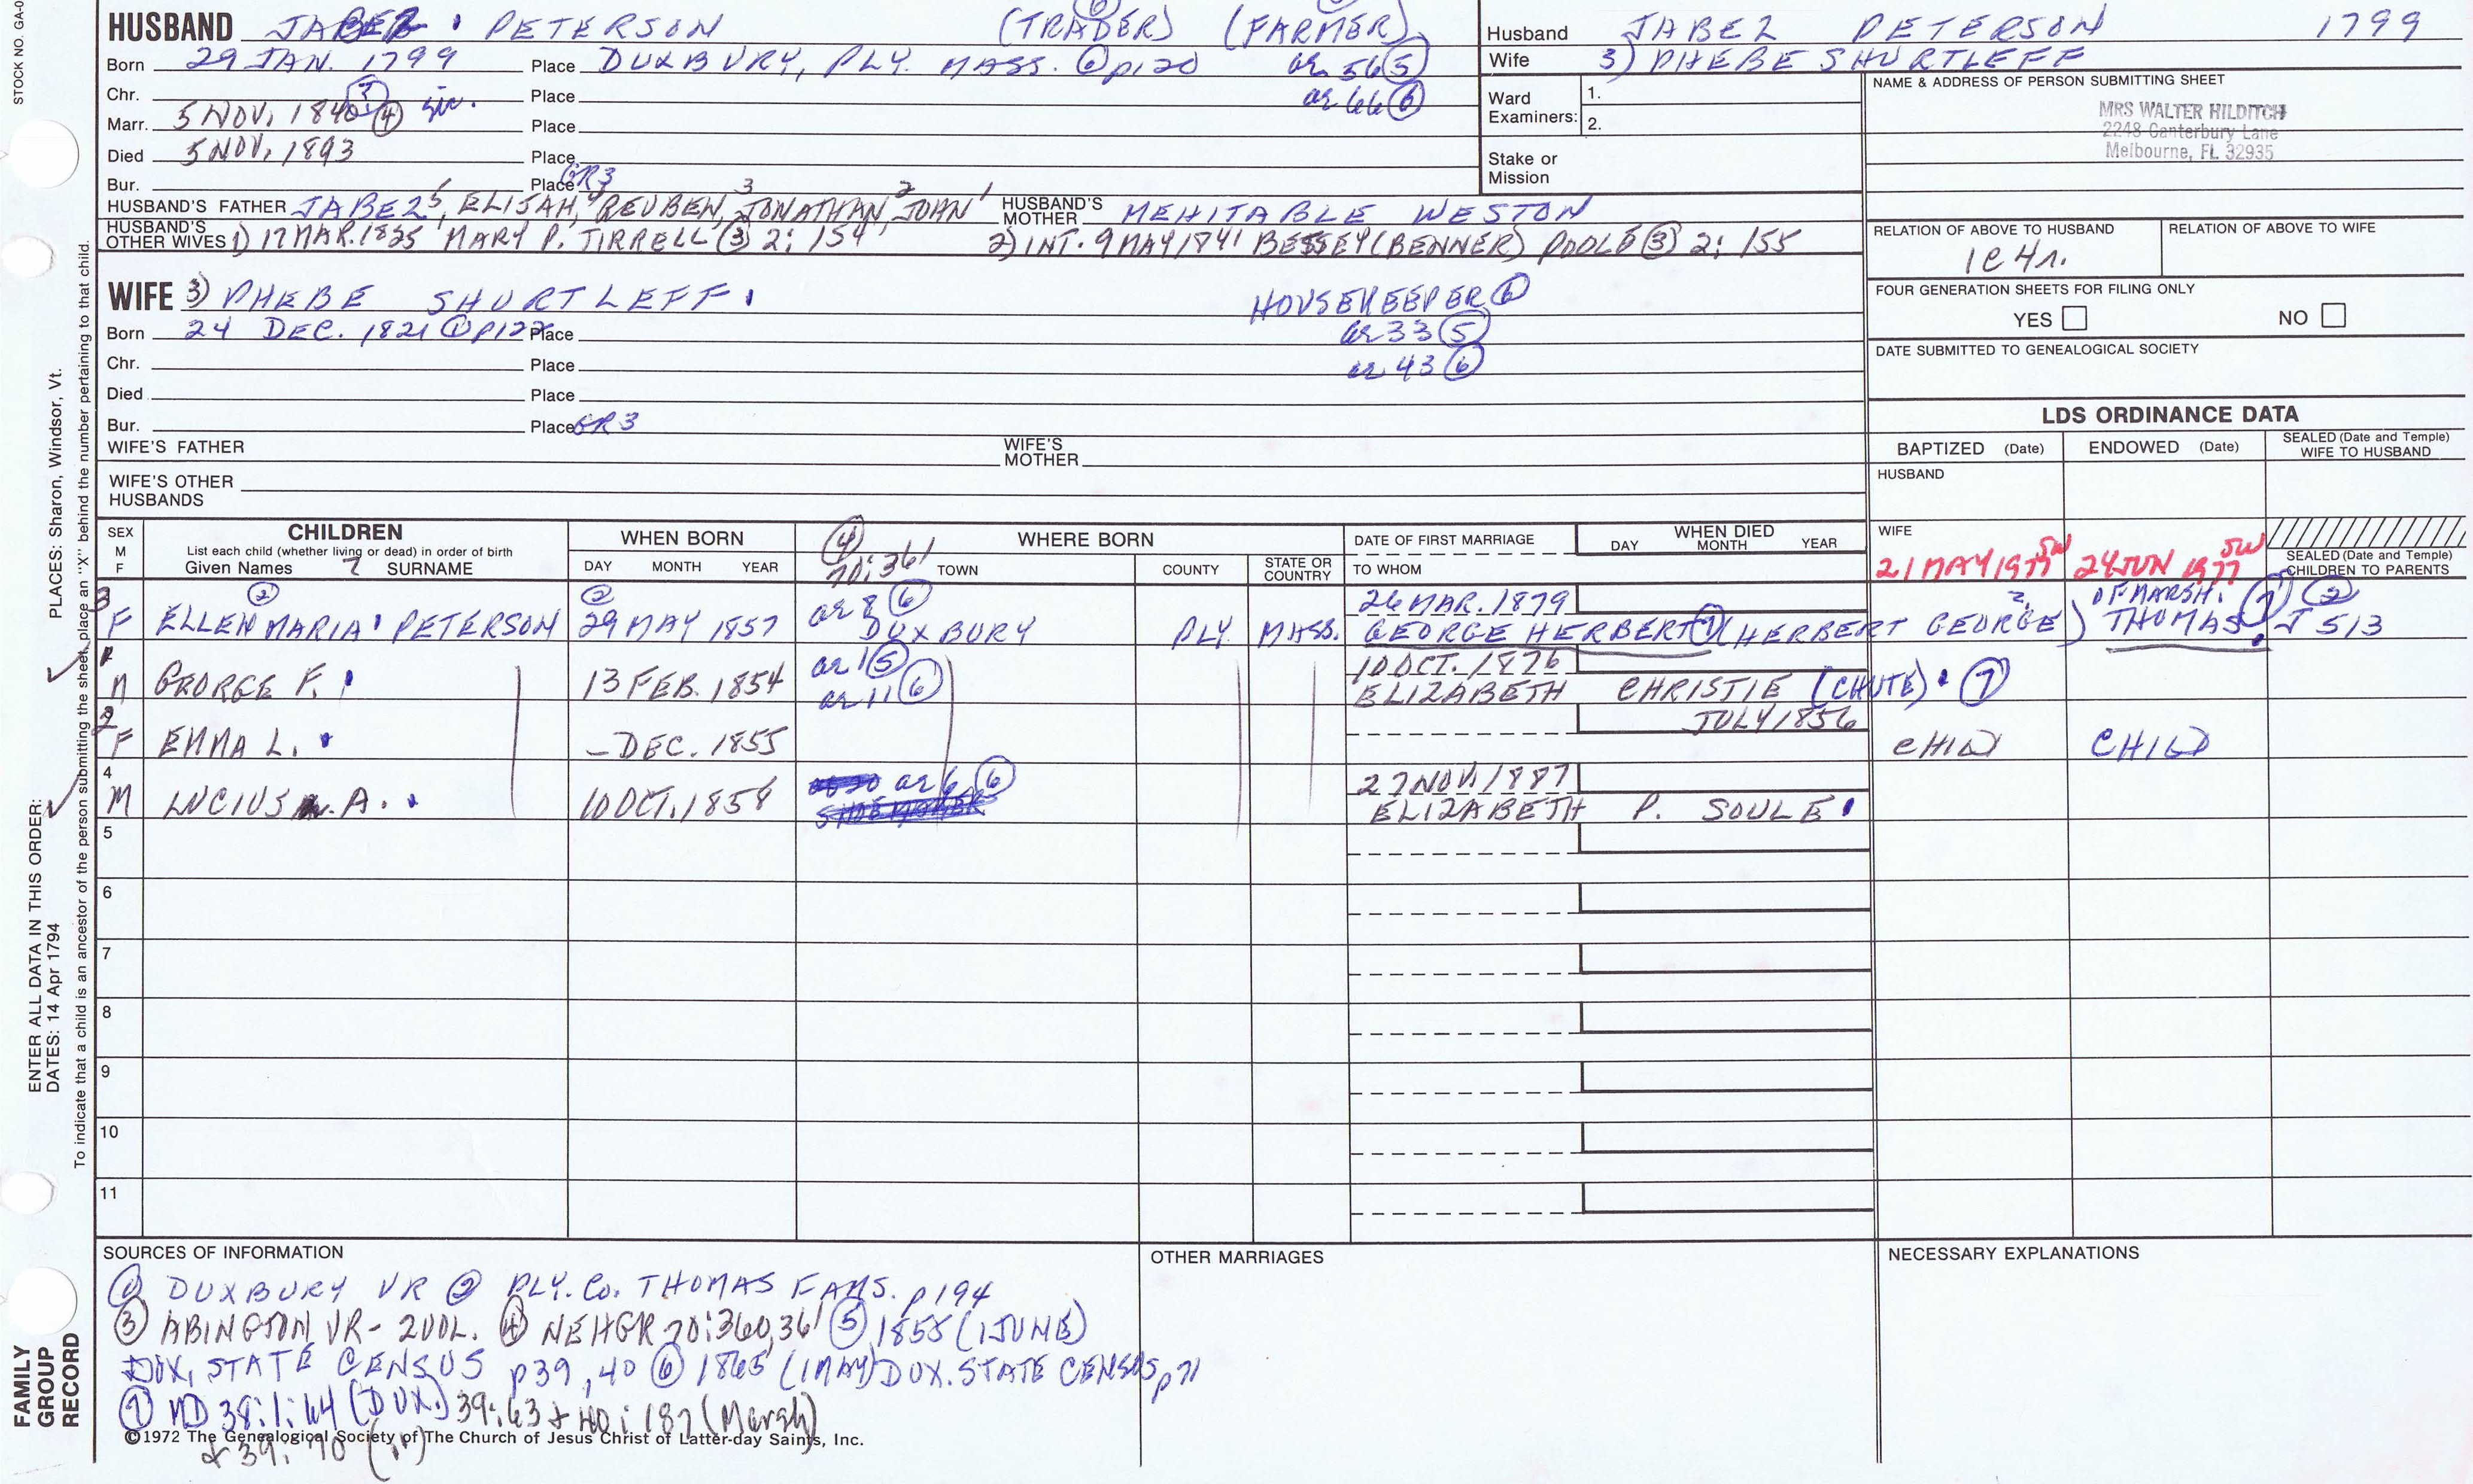 STOCK NO. GA-0
HUSBAND JABEZ PETERSON (TRADER) (FARMER)
Born 29 JAN. 1799 Place DUXBURY, PLY. MASS. ① p120 ae 56 ⑤
Chr. Place ae 66 ⑥
Marr. 5 NOV. 1840 ④ sic. Place
Died 5 NOV. 1893 Place
Bur. Place GR3
HUSBAND'S FATHER JABEZ 5, ELIJAH, 4 REUBEN, 3 JONATHAN, 2 JOHN 1 HUSBAND'S MOTHER MEHITABLE WESTON
HUSBAND'S OTHER WIVES 1) 17 MAR. 1825 MARY P. TIRRELL ③ 2: 154 2) INT. 9 MAY 1841 BESSEY (BENNER) POOLE ③ 2: 155
WIFE 3) PHEBE SHURTLEFF. HOUSEKEEPER ⑥
Born 24 DEC. 1821 ① p122 Place ae 33 ⑤
Chr. Place ae 43 ⑥
Died Place
Bur. Place GR3
WIFE'S FATHER WIFE'S MOTHER
WIFE'S OTHER HUSBANDS
Husband JABEZ PETERSON 1799
Wife 3) PHEBE SHURTLEFF
Ward Examiners: 1.
2.
Stake or Mission
NAME & ADDRESS OF PERSON SUBMITTING SHEET
MRS WALTER HILDITCH
2248 Canterbury Lane
Melbourne, FL 32935
RELATION OF ABOVE TO HUSBAND RELATION OF ABOVE TO WIFE
1c4r.
FOUR GENERATION SHEETS FOR FILING ONLY
YES NO
DATE SUBMITTED TO GENEALOGICAL SOCIETY
LDS ORDINANCE DATA
BAPTIZED (Date) ENDOWED (Date) SEALED (Date and Temple) WIFE TO HUSBAND
HUSBAND
WIFE
21 MAY 1977 SW 24 JUN 1977 SW SEALED (Date and Temple) CHILDREN TO PARENTS
SEX M F CHILDREN WHEN BORN WHERE BORN DATE OF FIRST MARRIAGE WHEN DIED
List each child (whether living or dead) in order of birth ④ 70:361 DAY MONTH YEAR
Given Names SURNAME DAY MONTH YEAR TOWN COUNTY STATE OR COUNTRY TO WHOM
3 ② ② ae 8 ⑥ 26 MAR. 1879 OF MARSH. ⑦ ②
F ELLEN MARIA PETERSON 29 MAY 1857 DUXBURY PLY. MASS. GEORGE HERBERT ⑦ (HERBERT GEORGE) THOMAS J 513
1 ae 1 ⑤ 10 OCT. 1876
M GEORGE F. 13 FEB. 1854 ae 11 ⑥ ELIZABETH CHRISTIE (CHUTE) ⑦
2 JULY 1856
F EMMA L. – DEC. 1855 CHILD CHILD
4 ae 6 ⑥ 27 NOV. 1887
M LUCIUS A. 10 OCT. 1858 ELIZABETH P. SOULE
5
6
7
8
9
10
11
SOURCES OF INFORMATION OTHER MARRIAGES NECESSARY EXPLANATIONS
① DUXBURY VR ② PLY. Co. THOMAS FAMS. p194
③ ABINGTON VR - 2 VOL. ④ NEHGR 70:360,361 ⑤ 1855 (1 JUNE)
DUX. STATE CENSUS p39, 40 ⑥ 1865 (1 MAY) DUX. STATE CENSUS p71
⑦ MD 38:1:64 (DUX.) 39:63 + 40:187 (Marsh)
©1972 The Genealogical Society of The Church of Jesus Christ of Latter-day Saints, Inc.
+ 39: 70 (")
FAMILY GROUP RECORD
ENTER ALL DATA IN THIS ORDER:
DATES: 14 Apr 1794 PLACES: Sharon, Windsor, Vt.
To indicate that a child is an ancestor of the person submitting the sheet, place an "X" behind the number pertaining to that child.